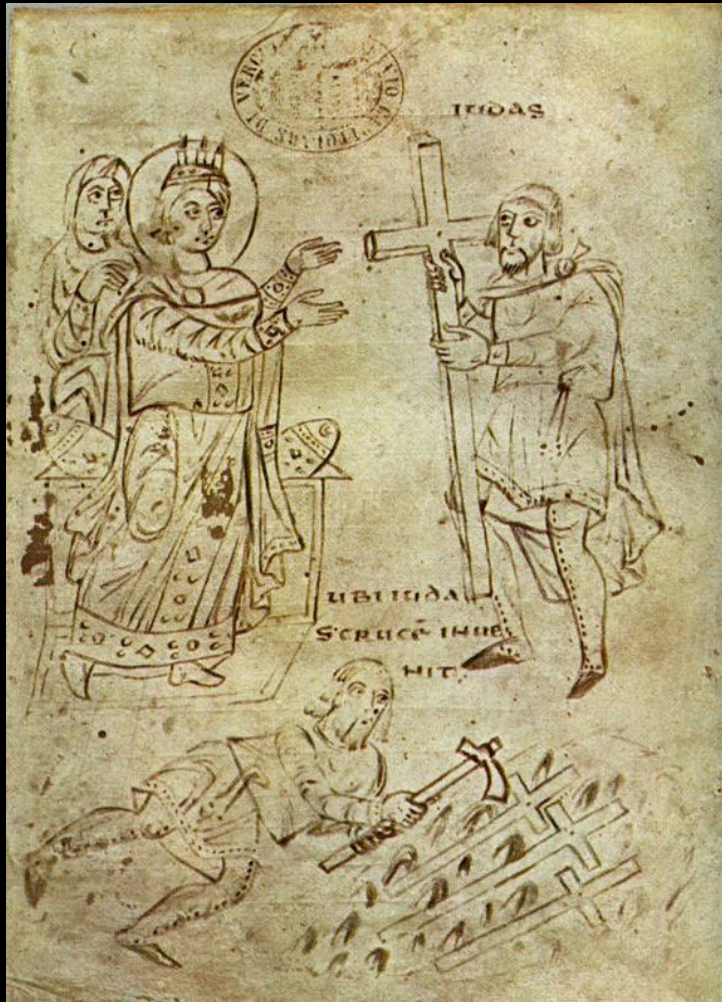 DI
IUDAS
UBI IUDA
S·CRUCĒ INUE
NIT·